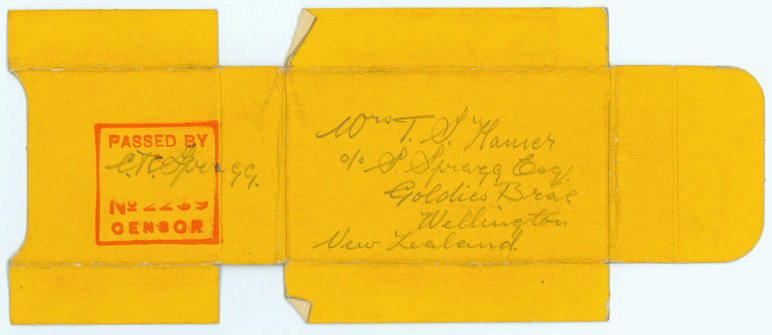 PASSED BY
C. K. Spragg.
No 2269
CENSOR
Mrs T. S. Hamer
c/o S. Spragg Esq.
Goldies Brae
Wellington
New Zealand